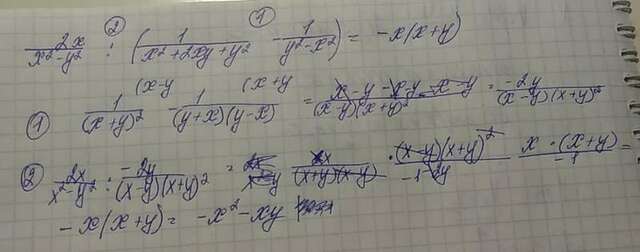 ② ①
2x/(x²-y²) : (1/(x²+2xy+y²) - 1/(y²-x²)) = -x(x+y)
(x-y (x+y
① 1/(x+y)² - 1/((y+x)(y-x)) = (x-y-x-y)/((x-y)(x+y)²) = -2y/((x-y)(x+y)²)
② 2x/(x²-y²) : -2y/((x-y)(x+y)²) = 2x/((x+y)(x-y)) · (x-y)(x+y)²/(-1 2y) x·(x+y)/(-1) =
-x(x+y) = -x²-xy